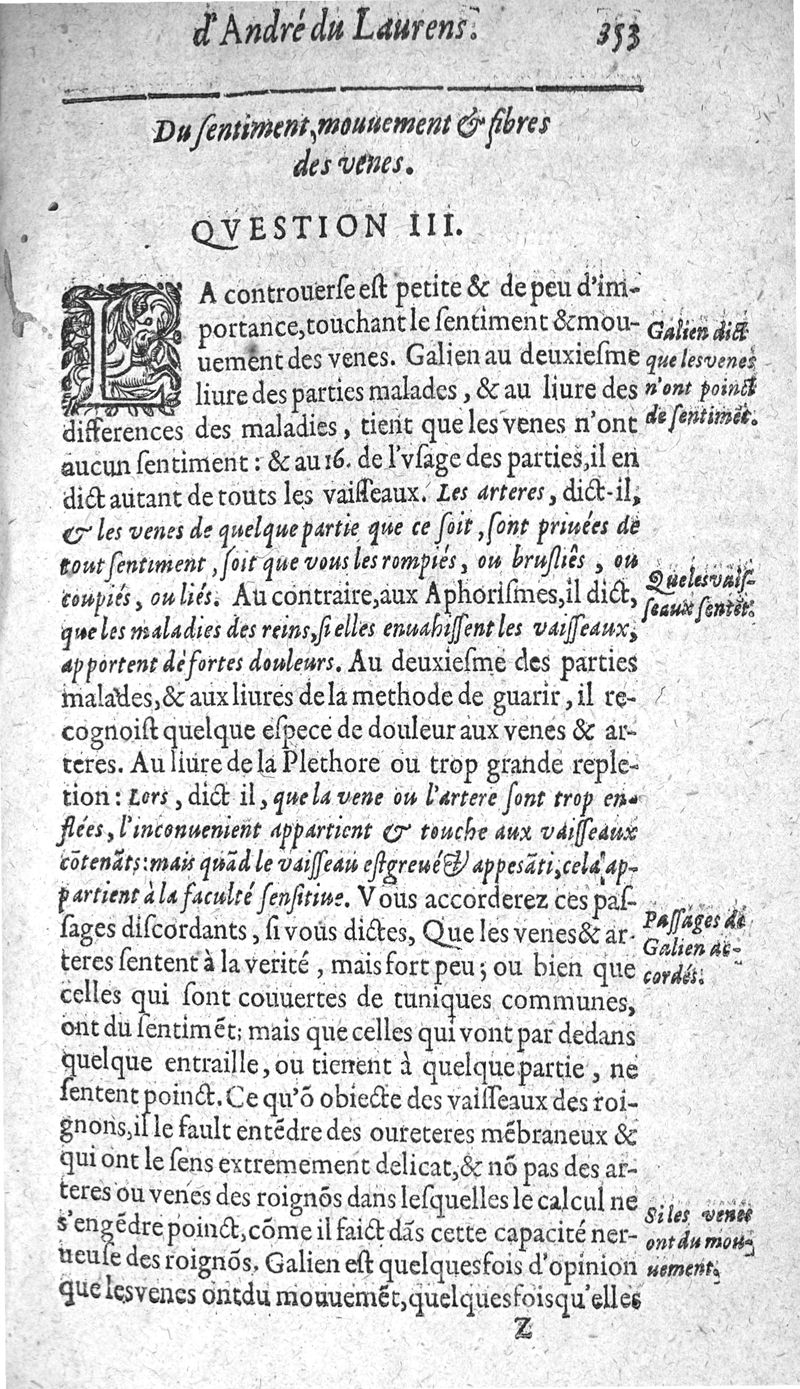 d'André du Laurens. 353
Du ſentiment, mouuement & fibres
des venes.
QVESTION III.
LA controuerſe eſt petite & de peu d'im-
portance, touchant le ſentiment & mou-
uement des venes. Galien au deuxieſme
liure des parties malades, & au liure des
differences des maladies, tient que les venes n'ont
aucun ſentiment: & au 16. de l'vſage des parties, il en
dict autant de touts les vaiſſeaux. Les arteres, dict-il,
& les venes de quelque partie que ce ſoit, ſont priuées de
tout ſentiment, ſoit que vous les rompiés, ou bruſliés, ou
coupiés, ou liés. Au contraire, aux Aphoriſmes, il dict,
que les maladies des reins, ſi elles enuahiſſent les vaiſſeaux,
apportent de fortes douleurs. Au deuxieſme des parties
malades, & aux liures de la methode de guarir, il re-
cognoiſt quelque eſpece de douleur aux venes & ar-
teres. Au liure de la Plethore ou trop grande reple-
tion: Lors, dict il, que la vene ou l'artere ſont trop en-
flées, l'inconuenient appartient & touche aux vaiſſeaux
cõtenãts: mais quãd le vaiſſeau eſt greué & appeſãti, cela ap-
partient à la faculté ſenſitiue. Vous accorderez ces paſ-
ſages diſcordants, ſi vous dictes, Que les venes & ar-
teres ſentent à la verité, mais fort peu; ou bien que
celles qui ſont couuertes de tuniques communes,
ont du ſentimẽt; mais que celles qui vont par dedans
quelque entraille, ou tienent à quelque partie, ne
ſentent poinct. Ce qu'õ obiecte des vaiſſeaux des roi-
gnons, il le fault entẽdre des oureteres mẽbraneux &
qui ont le ſens extremement delicat, & nõ pas des ar-
teres ou venes des roignõs dans leſquelles le calcul ne
s'engẽdre poinct, cõme il faict dãs cette capacité ner-
ueuſe des roignõs. Galien eſt quelquesfois d'opinion
que les venes ont du mouuemẽt, quelquesfois qu'elles
Z
Galien dict
que les venes
n'ont poinct
de ſentimẽt.
Que les vaiſ-
ſeaux ſentẽt.
Paſſages de
Galien ac-
cordés.
Si les venes
ont du mou-
uement.